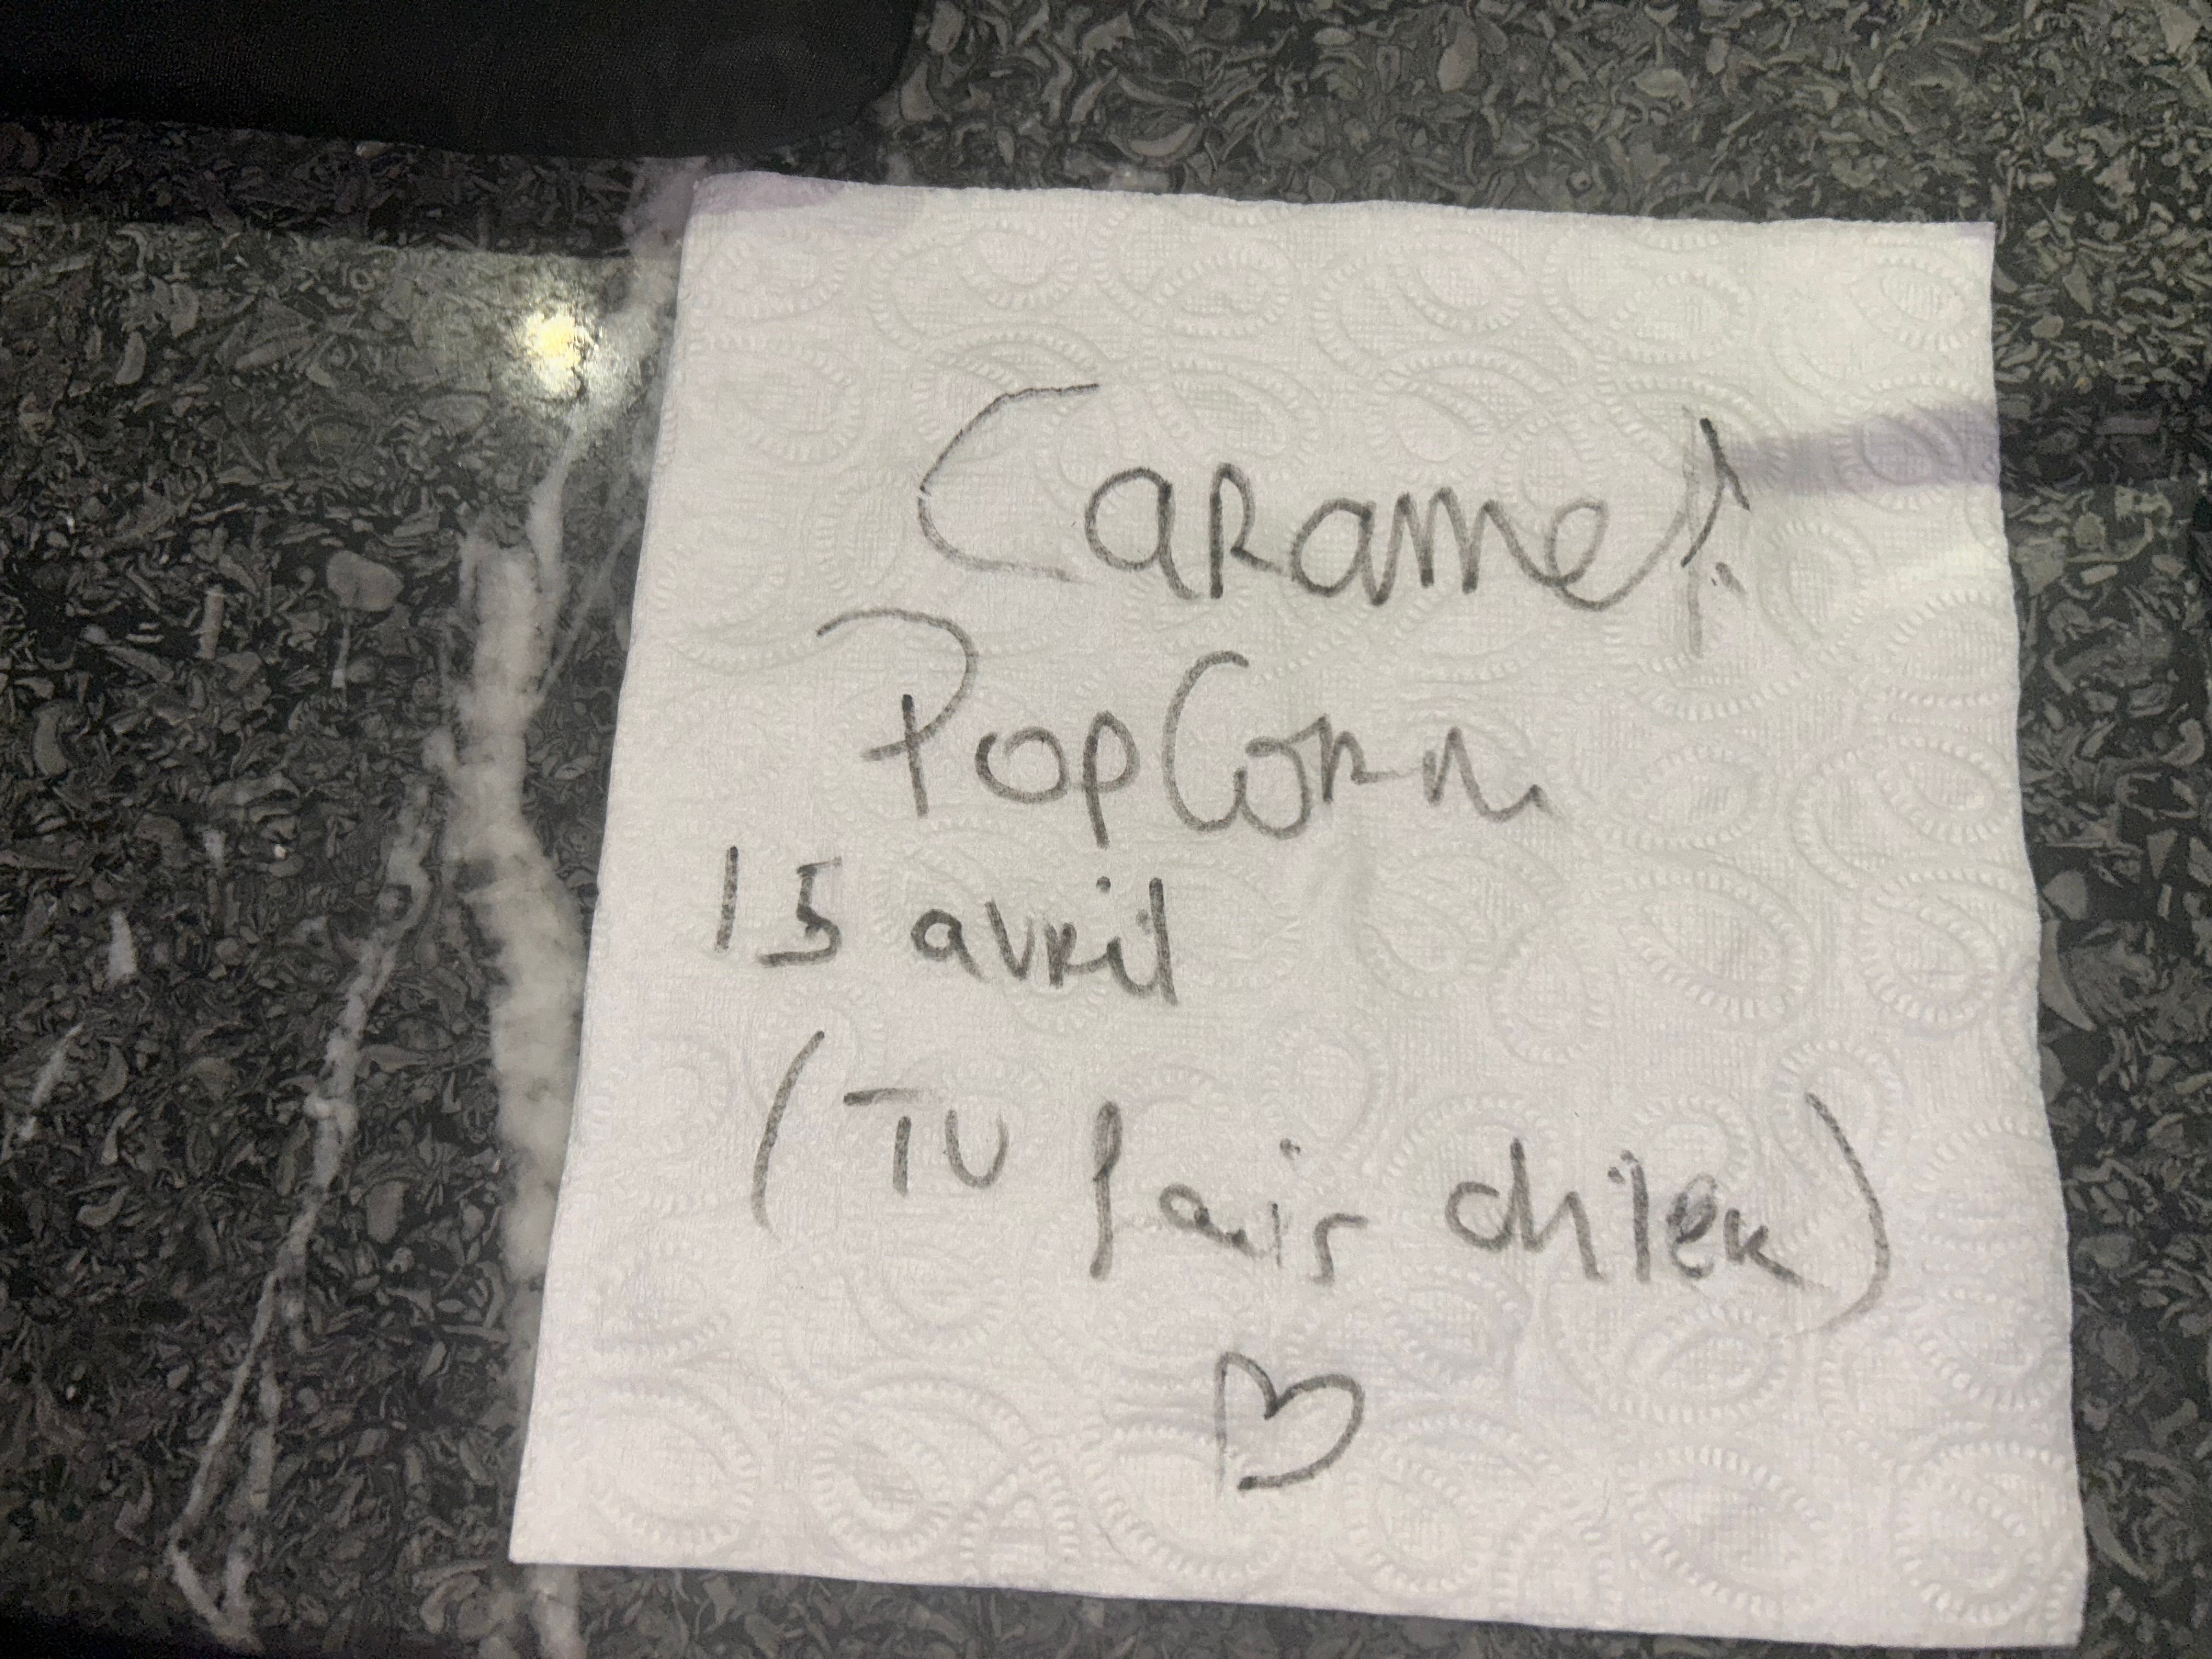 Caramel!
PopCorn
15 avril
(TU fais chier)
♡